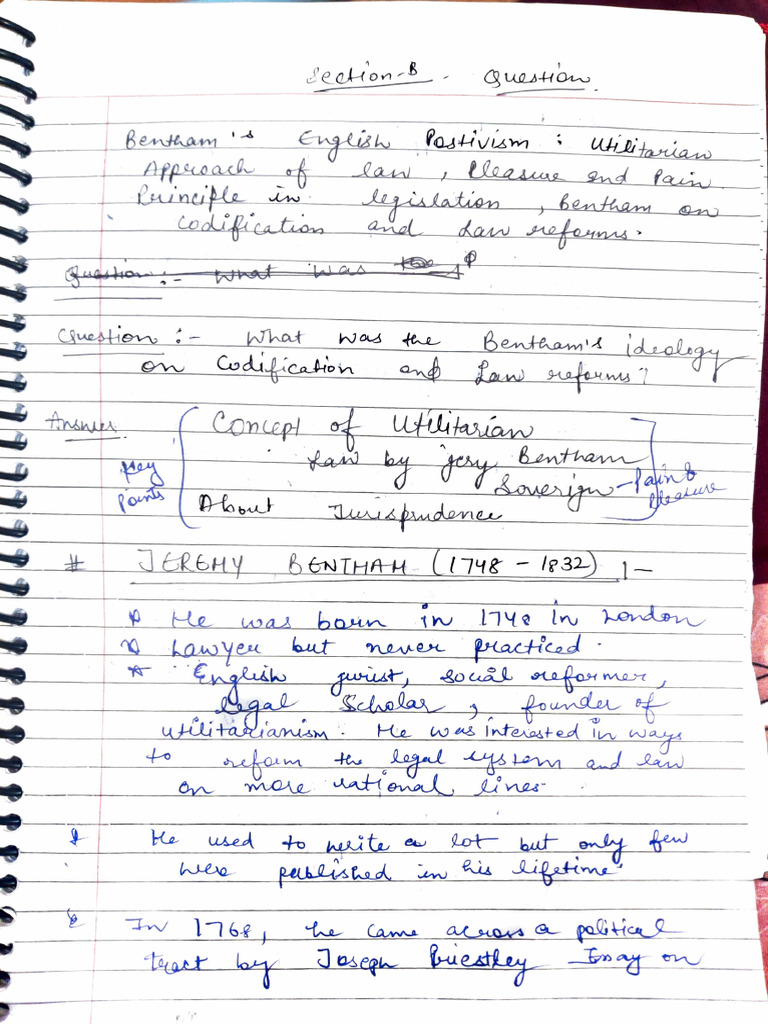 Section-B - Question
Bentham's English Postivism : Utilitarian
Approach of law, Pleasure and Pain
Principle in legislation, Bentham on
Codification and Law reforms.
Question :- What was the
Question :- What was the Bentham's ideology
on Codification and Law reforms?
Answer Concept of Utilitarian
Law by Jery Bentham
Key Points
Soverign - Pain & Pleasure
About Jurisprudence
# JEREMY BENTHAM (1748 - 1832) :-
He was born in 1748 in London
Lawyer but never practiced.
English jurist, social reformer,
legal Scholar, founder of
utilitarianism. He was interested in ways
to reform the legal system and law
on more rational lines.
He used to write a lot but only few
were published in his lifetime.
In 1768, he came across a political
tract by Joseph Priestley Essay on